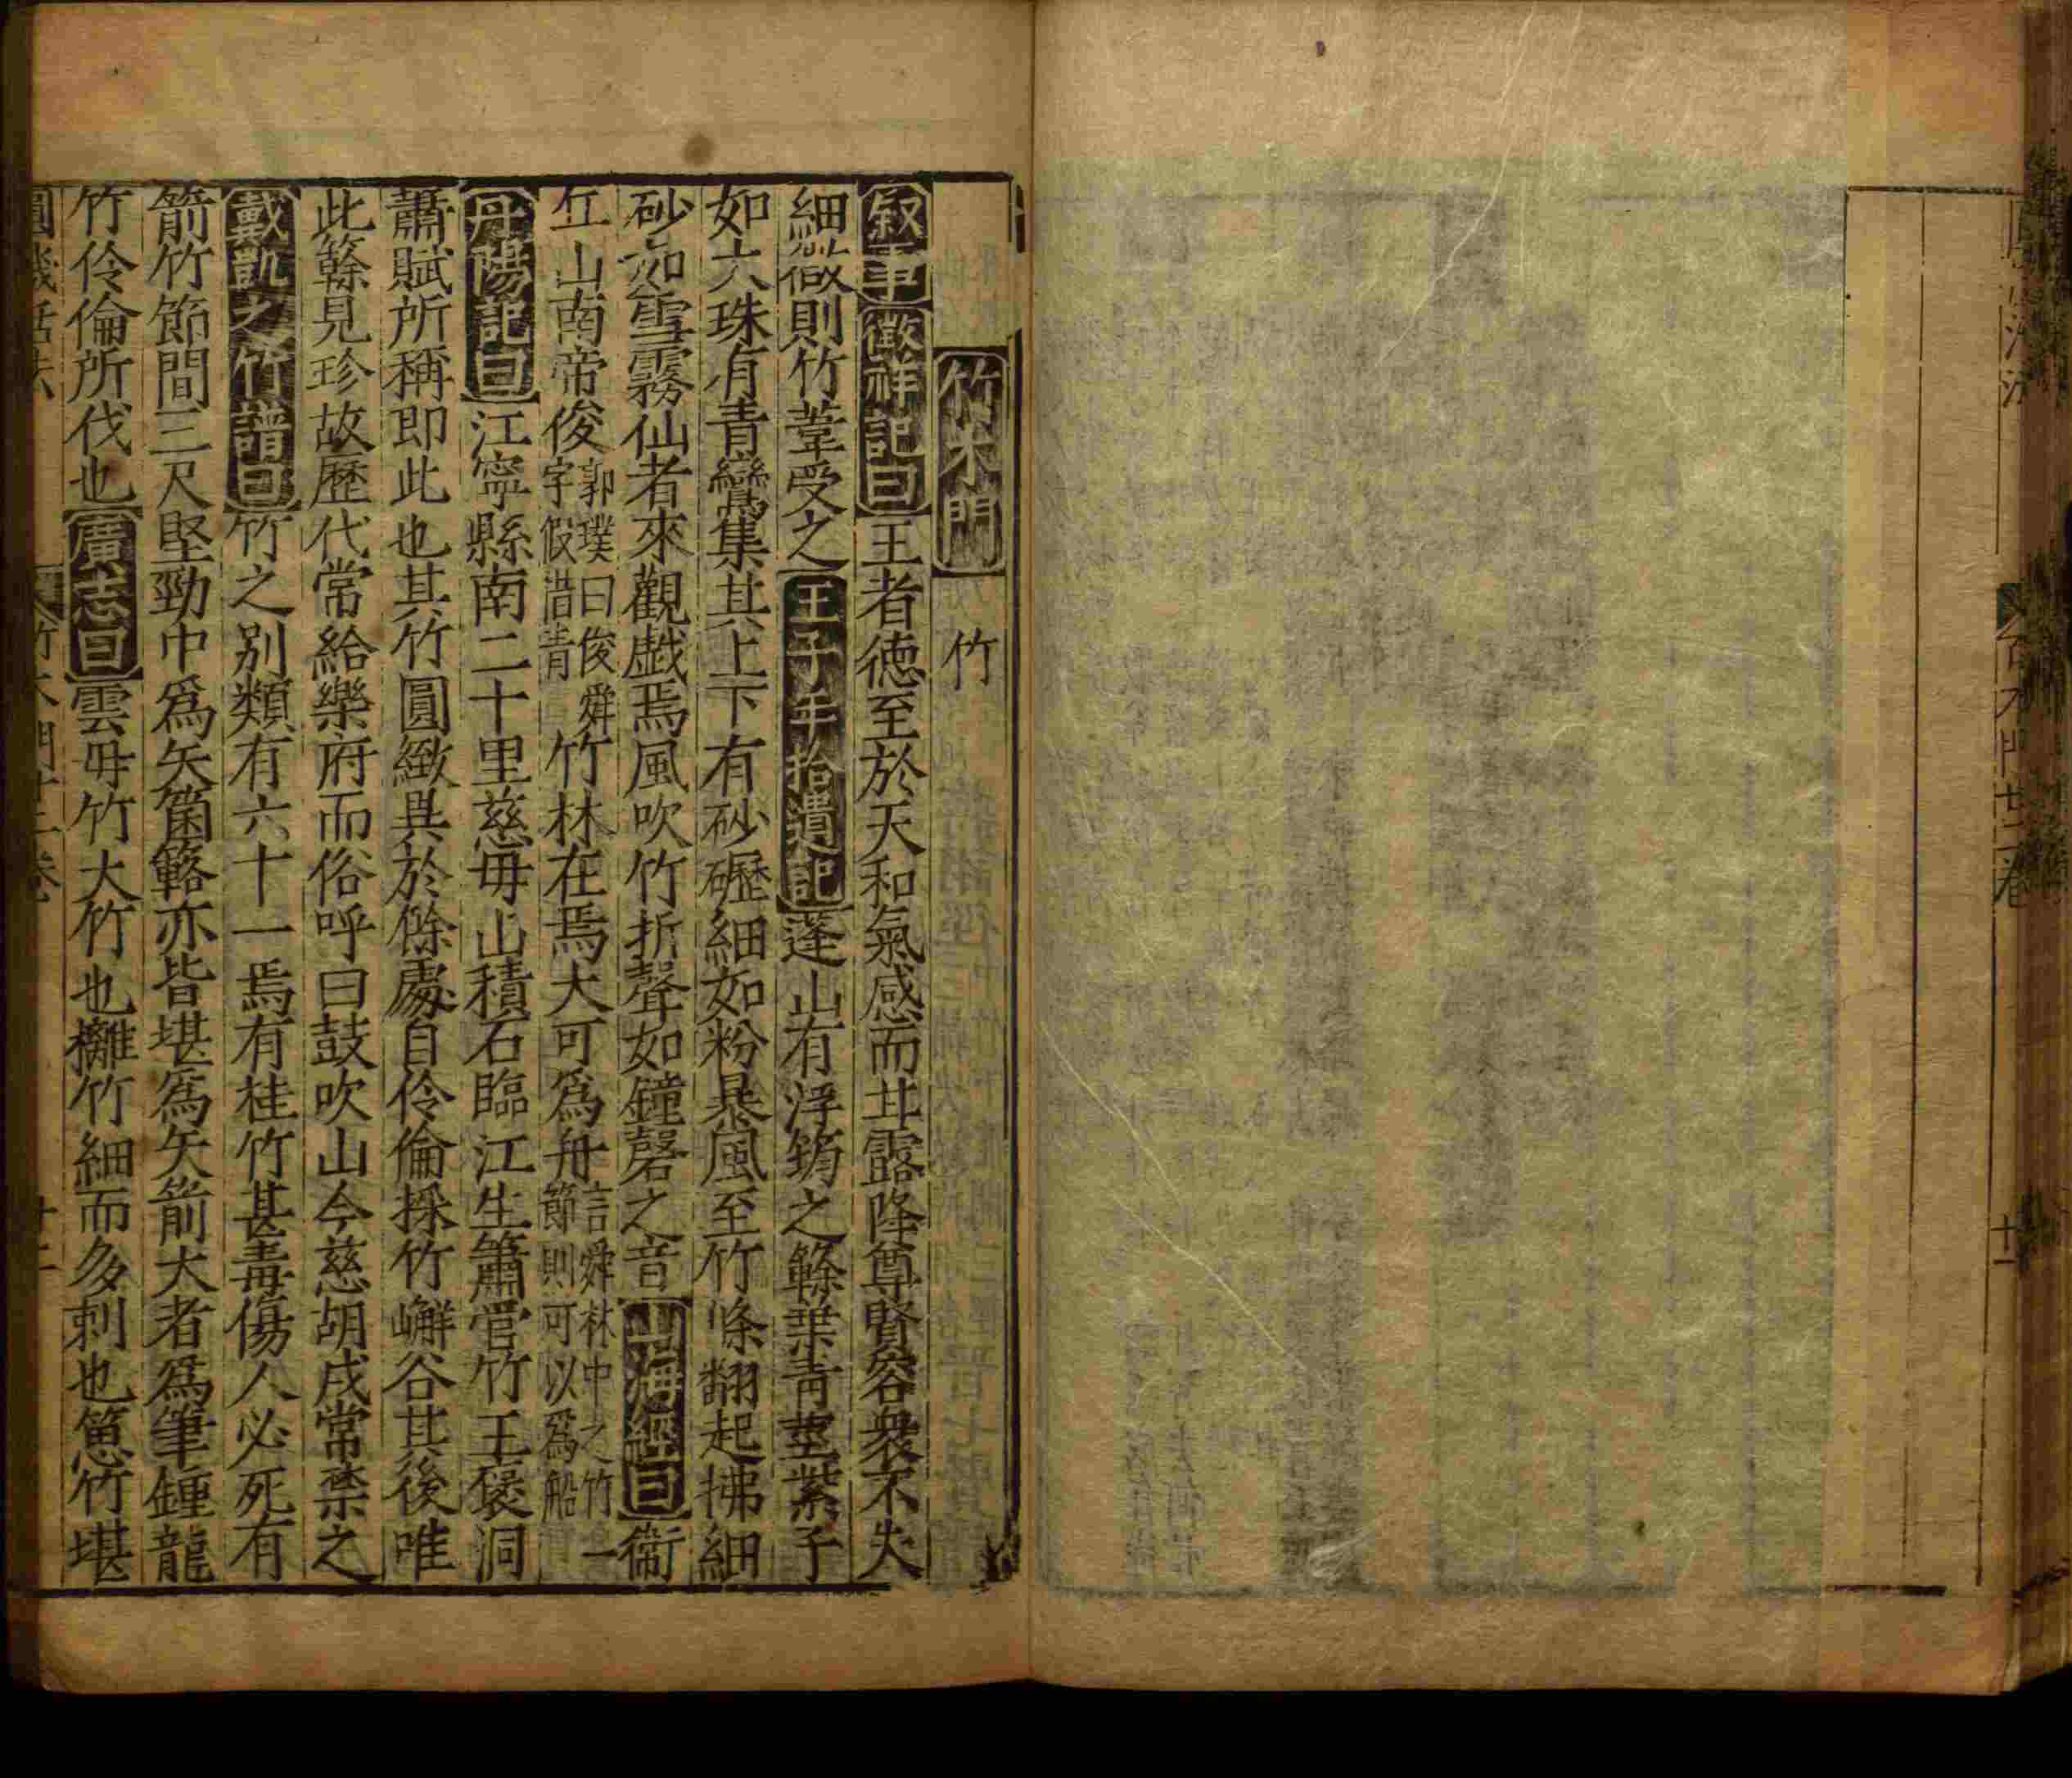 竹木門 竹
叙事 徵祥記曰 王者徳至於天和氣感而甘露降尊賢容衆不失
細微則竹葦受之 王子年拾遺記 蓬山有浮筠之簳葉青莖紫子
如大珠有青鸞集其上下有砂礰細如粉暴風至竹條翻起拂細
砂如雪霧仙者來觀戯焉風吹竹折聲如鐘磬之音 山海經曰 衞
丘山南帝俊 郭璞曰俊舜字假借音 竹林在焉大可爲舟 言舜林中之竹一節則可以爲船
丹陽記曰 江寧縣南二十里慈母山積石臨江生簫管竹王褒洞
蕭賦所稱即此也其竹圓緻異於餘處自伶倫採竹嶰谷其後唯
此簳見珍故歷代常給樂府而俗呼曰鼓吹山今慈胡戍常禁之
戴凱之竹譜曰 竹之别類有六十一焉有桂竹甚毒傷人必死有
箭竹節間三尺堅勁中爲矢箘簵亦皆堪爲矢箭大者爲筆鍾龍
竹伶倫所伐也 廣志曰 雲母竹大竹也檵竹細而多刺也䈡竹堪
圓機活法 竹木門廿二卷 十二